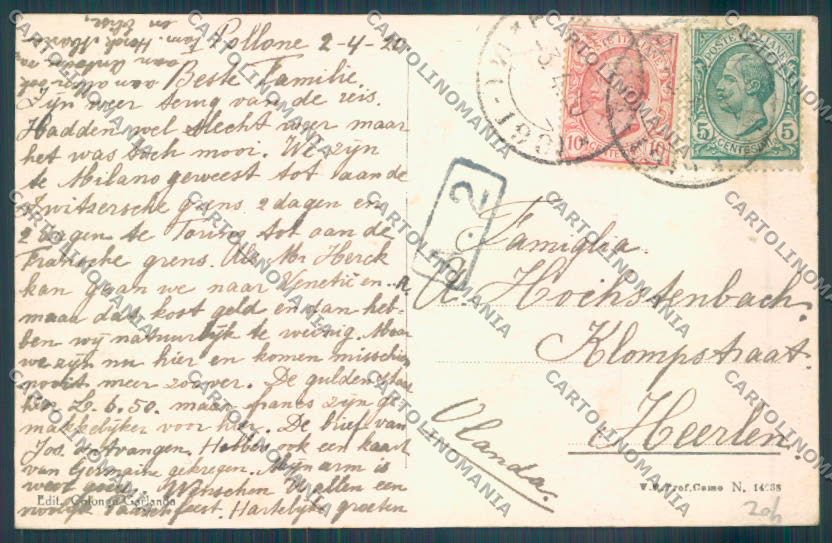 Pollone 2-4-20
Beste Familie
Zyn weer terug van de reis.
Hadden wel slecht weer maar
het was toch mooi. We zyn
te Milano geweest tot aan de
Zwitzersche grens 2 dagen en
2 dagen te Torino tot aan de
Fransche grens. Als Mr Herck
kan gaan we naar Venetië en
maar dat kost geld en dan heb-
ben wy natuurlyk te weinig. Maar
we zyn nu hier en komen misschien
nooit meer zoover. De gulden staat
hier L. 6.50. maar francs zyn ge
makkelyker voor hier. De brief van
Jos. ontvangen. Hebben ook een kaart
van Germaine gekregen. Myn arm is
weer goed. Wenschen U allen een
vroolyk Paaschfeest. Hartelyke groeten
aan allen ook
aan
fam.
en
Edit. Colongo Garlanda
POSTE ITALIANE
10 10
CENTESIMI
POSTE ITALIANE
5 5
CENTESIMI
2
Famiglia
A. Hochstenbach.
Klompstraat.
Heerlen.
Olanda.
Prof. Como N. 14985
CARTOLINOMANIA